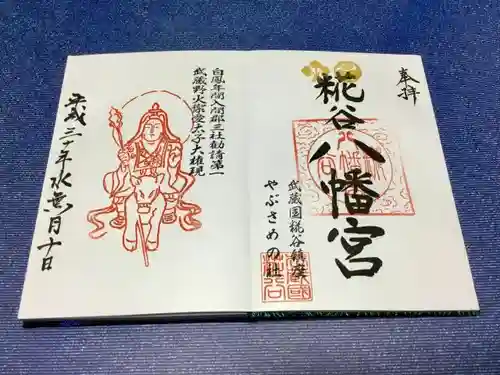 奉拝
糀谷八幡宮
武蔵国糀谷鎮座
やぶさめの社
白鳳年間入間郡三社勧請第一
武蔵野火塚愛太子大権現
平成三十年水無月十日